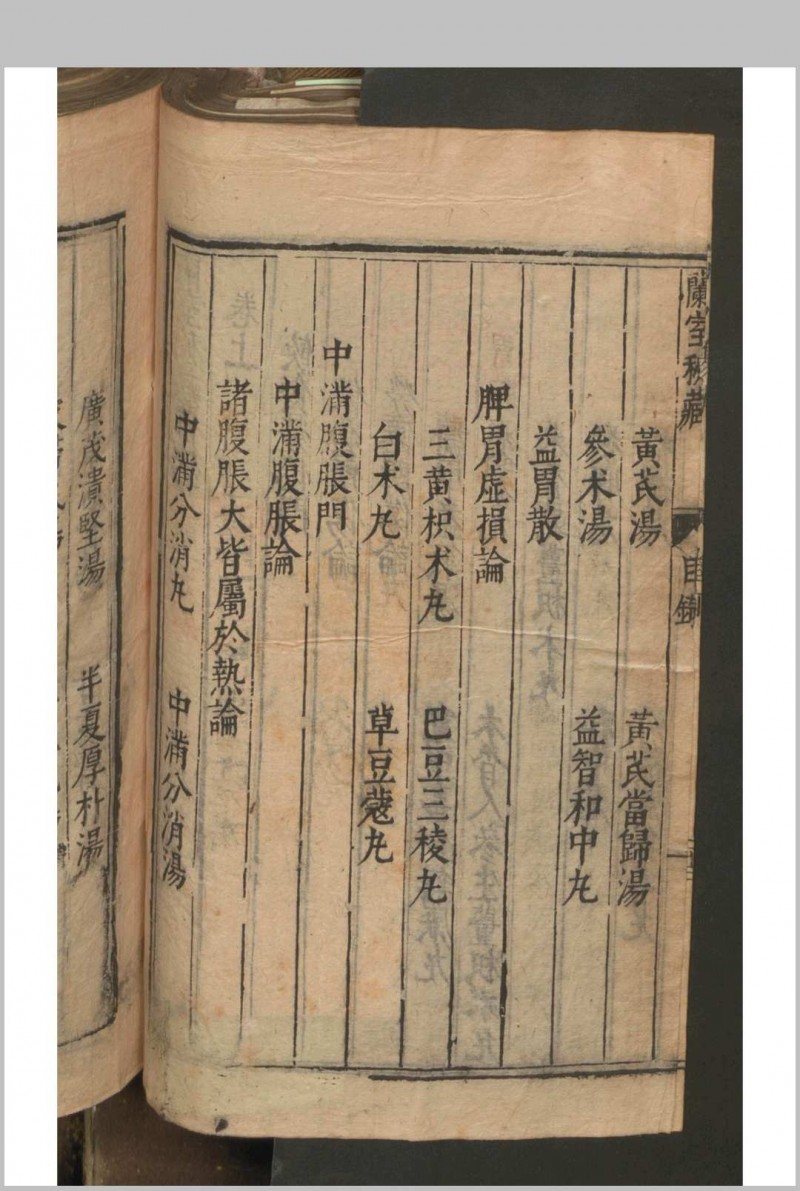 蘭室秘藏 目錄
黃芪湯 黃芪當歸湯
參术湯 益智和中丸
益胃散
脾胃虛損論
三黃枳术丸 巴豆三稜丸
白术丸 草豆蔻丸
中滿腹脹門
中滿腹脹論
諸腹脹大皆屬於熱論
中滿分消丸 中滿分消湯
廣茂潰堅湯 半夏厚朴湯